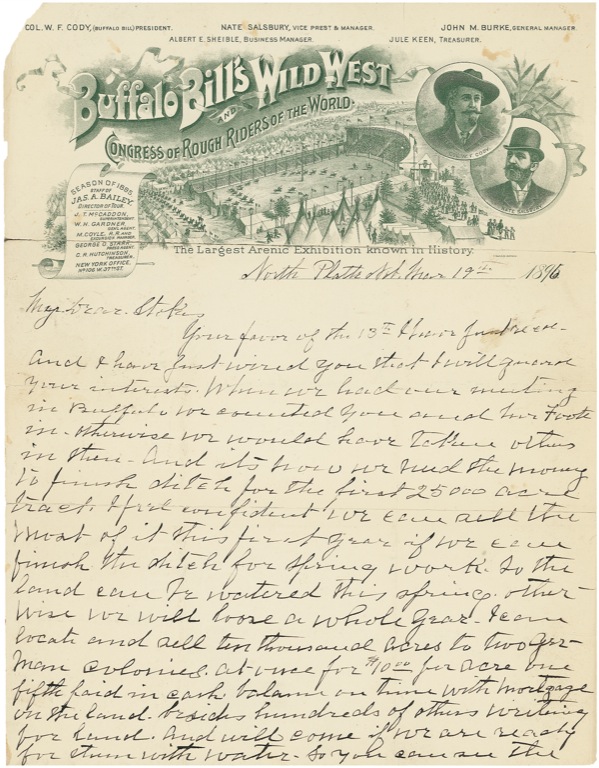 COL. W. F. CODY, (BUFFALO BILL) PRESIDENT. NATE SALSBURY, VICE PREST & MANAGER. JOHN M. BURKE, GENERAL MANAGER.
ALBERT E. SHEIBLE, BUSINESS MANAGER. JULE KEEN, TREASURER.
Buffalo Bill's Wild West
AND
CONGRESS OF ROUGH RIDERS OF THE WORLD.
COL. W. F. CODY.
NATE SALSBURY
SEASON OF 1895
STAFF OF
JAS. A. BAILEY,
DIRECTOR OF TOUR.
J. T. McCADDON,
SUPERINTENDENT.
W. H. GARDNER,
GENL. AGENT.
M. COYLE, R.R. AND
EXCURSION MANAGER.
GEORGE O. STARR,
PRESS AGENT.
C. R. HUTCHINSON,
TREASURER.
NEW YORK OFFICE,
No 106 W. 37TH ST.
The Largest Arenic Exhibition known in History.
North Platte Neb. Mar 19th 1896
My Dear Stokes
Your favor of the 13th I have just
And I have just wired you that I will guard
your interests. When we had our meeting
in Buffalo we counted you and Foote
in. otherwise we would have taken others
in then. And its now we need the money
to finish ditch for the first 25000 acre
tract. I feel confident we can sell the
most of it this first year if we can
finish the ditch for spring work. So the
land can be watered this spring. other-
wise we will loose a whole year. I can
locate and sell ten thousand acres to two Ger-
man colonies. at once for $10.00 per acre one
fifth paid in cash balance on time with mortgage
on the land. besides hundreds of others writing
for land. And will come if we are ready
for them with water. So you can see the